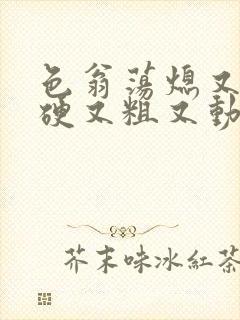 色翁蕩熄又
硬又粗又動
芥末味冰紅茶